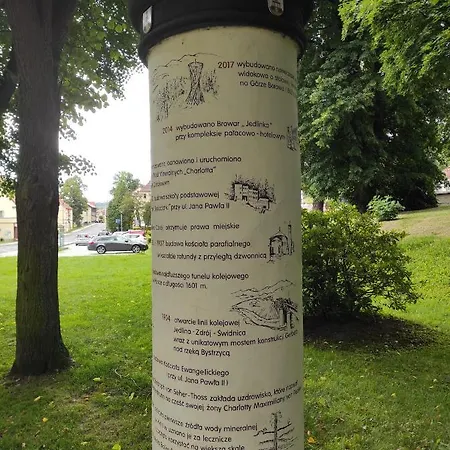 2017 wybudowano
widokową o
na Górze Borowa
2014 wybudowano Browar „Jedlinka"
przy kompleksie pałacowo - hotelowym
odnowiono i uruchomiono
"Charlotta"
szkoły podstawowej
przy ul. Jana Pawła II
otrzymuje prawa miejskie
budowa kościoła parafialnego
w kształcie rotundy z przyległą dzwonnicą
najdłuższego tunelu kolejowego
o długości 1601 m.
otwarcie linii kolejowej
Jedlina - Zdrój - Świdnica
wraz z unikatowym mostem konstrukcji
nad rzeką Bystrzycą
Kościoła Ewangelickiego
przy ul. Jana Pawła II
von Seher-Thoss zakłada uzdrowisko, które
na cześć swojej żony Charlotty Maximiliany
pierwsze źródła wody mineralnej
uznano je za lecznicze
na większą skalę